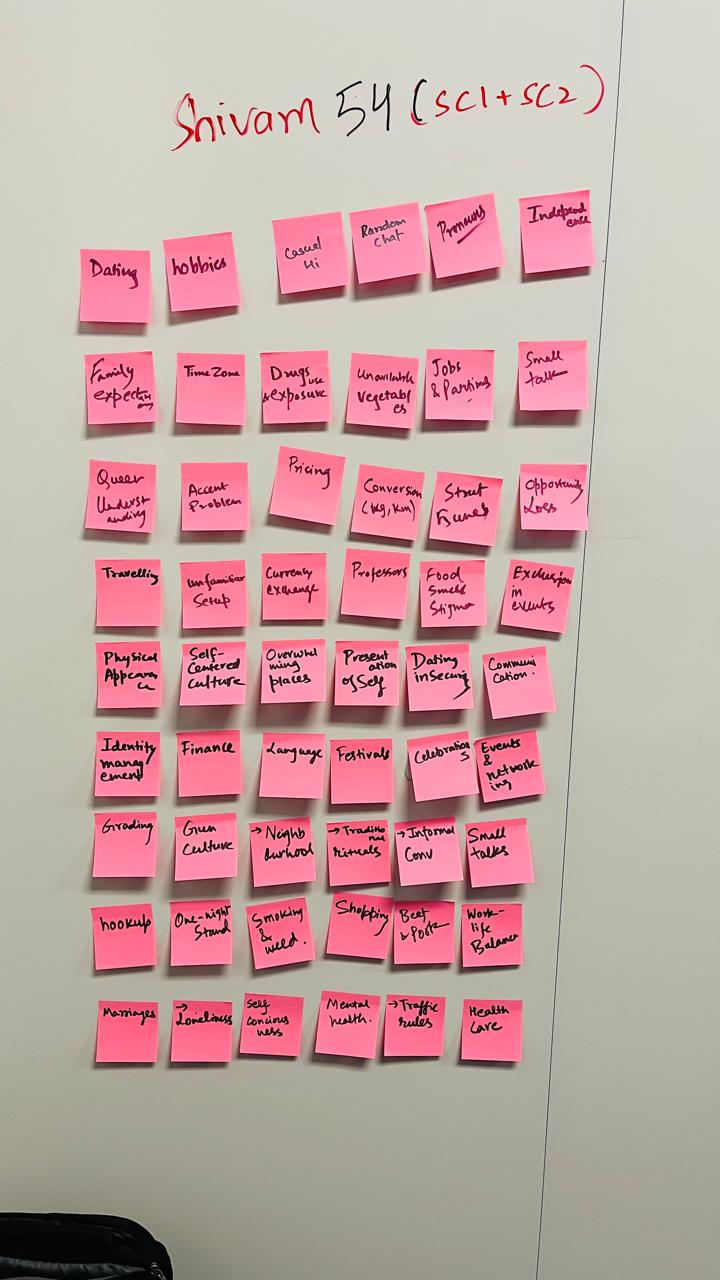 Shivam 54 (SC1+SC2)
Dating
hobbies
Casual
Hi
Random
chat
Pronouns
Independ
ence
Family
expectati
ons
Time Zone
Drugs use
& exposure
Unavailable
vegetabl
es
Jobs
& Partions
Small
talk
Queer
Underst
anding
Accent
Problem
Pricing
Conversion
(kg, km)
Street
Opportunity
Loss
Travelling
Unfamiliar
Setup
Currency
exchange
Professors
Food
Smell
Stigma
Exclusion
in
events
Physical
Appearan
ce
Self-
Centered
culture
Overwhel
ming
places
Present
ation
of Self
Dating
insecurity
Communi
cation.
Identity
manag
ement
Finance
Language
Festivals
Celebration
s
Events
&
network
ing
Grading
Gun
Culture
→ Neighb
ourhood
→ Traditio
nal
rituals
→ Informal
Conv
Small
talks
hookup
One-night
Stand
Smoking
&
weed.
Shopping
Beef
& Pork
Work-
life
Balance
Marriages
→
Loneliness
Self
concious
ness
Mental
health.
→ Traffic
rules
Health
Care